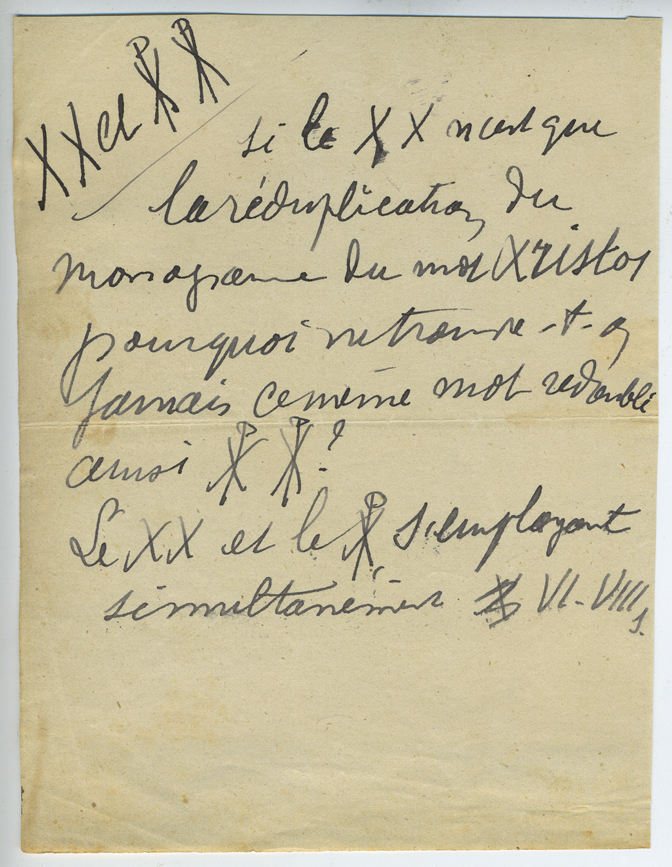 XX et ☧ ☧
Si le XX n'est que
la réduplication du
monograme du mot Xristos
pourquoi ne trouve-t-on
jamais ce même mot redoublé
ainsi ☧ ☧ ?
Le XX et le ☧ s'employant
simultanément VI-VIII s.